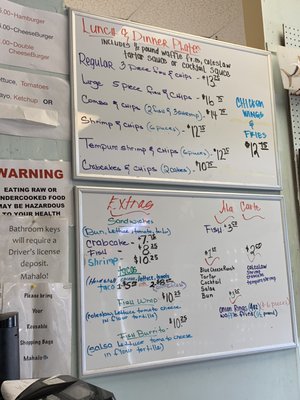 6.00-Hamburger
7.00-
CheeseBurger
8.00-Double
CheeseBurger
Lettuce, Tomatoes,
Mayo, Ketchup OR
WARNING
EATING RAW or
UNDERCOOKED FOOD
MAY BE HAZARDOUS
TO YOUR HEALTH
Bathroom keys
will require a
Driver's license
deposit.
Mahalo!
Please bring
Your
Reusable
Shopping Bags
Mahalo
Lunch & Dinner Plates
INCLUDES 1/2 pound waffle Fries, coleslaw
tartar sauce or cocktail sauce
Regular 3 piece fish & chips -
Large 5 piece fish & chips - $16
Combo & chips (2 fish & 3 shrimp) - $14
Shrimp & chips (6 pieces) - $12
Tempura shrimp & chips (6 pieces) - $12
Crabcakes & chips (2 cakes) -
CHICKEN
WINGS
&
FRIES
$12
Extras
Sandwiches
(Bun, lettuce, tomato,
Crabcake -
Fish -
Shrimp - $10
Tacos
lettuce, tomato
taco
Fish Wrap $10
(coleslaw lettuce tomato cheese
in flour tortilla)
Fish Burrito $10
(salsa lettuce tomato cheese
in flour tortilla)
Ala Carte
Fish
Blue Cheese
Ranch
Tartar
Cocktail
Salsa
Bun
coleslaw
Shrimp
tempura shrimp
onion Rings
waffle fries (1/2 pound)